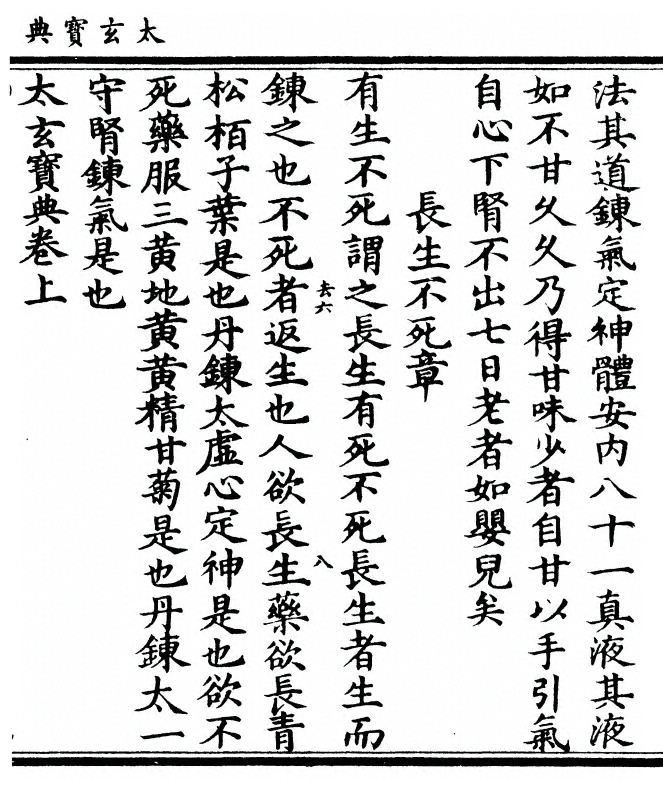 太玄寶典
法其道鍊氣定神體安内八十一真液其液
如不甘久久乃得甘味少者自甘以手引氣
自心下腎不出七日老者如嬰兒矣
長生不死章
有生不死謂之長生有死不死長生者生而
鍊之也不死者返生也人欲長生藥欲長青
去六
八
松栢子葉是也丹鍊太虛心定神是也欲不
死藥服三黄地黄黄精甘菊是也丹鍊太一
守腎鍊氣是也
太玄寶典卷上